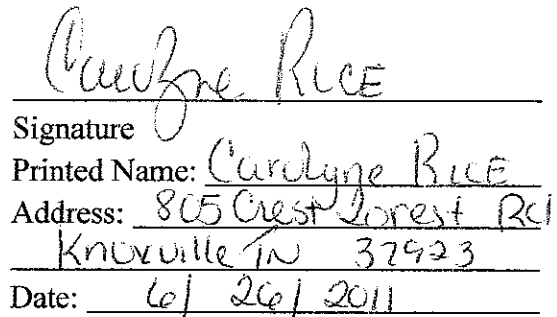 Carolyne Rice
Signature
Printed Name: Carolyne Rice
Address: 805 Crest Forest Rd
Knoxville TN 37923
Date: 6/ 26/ 2011